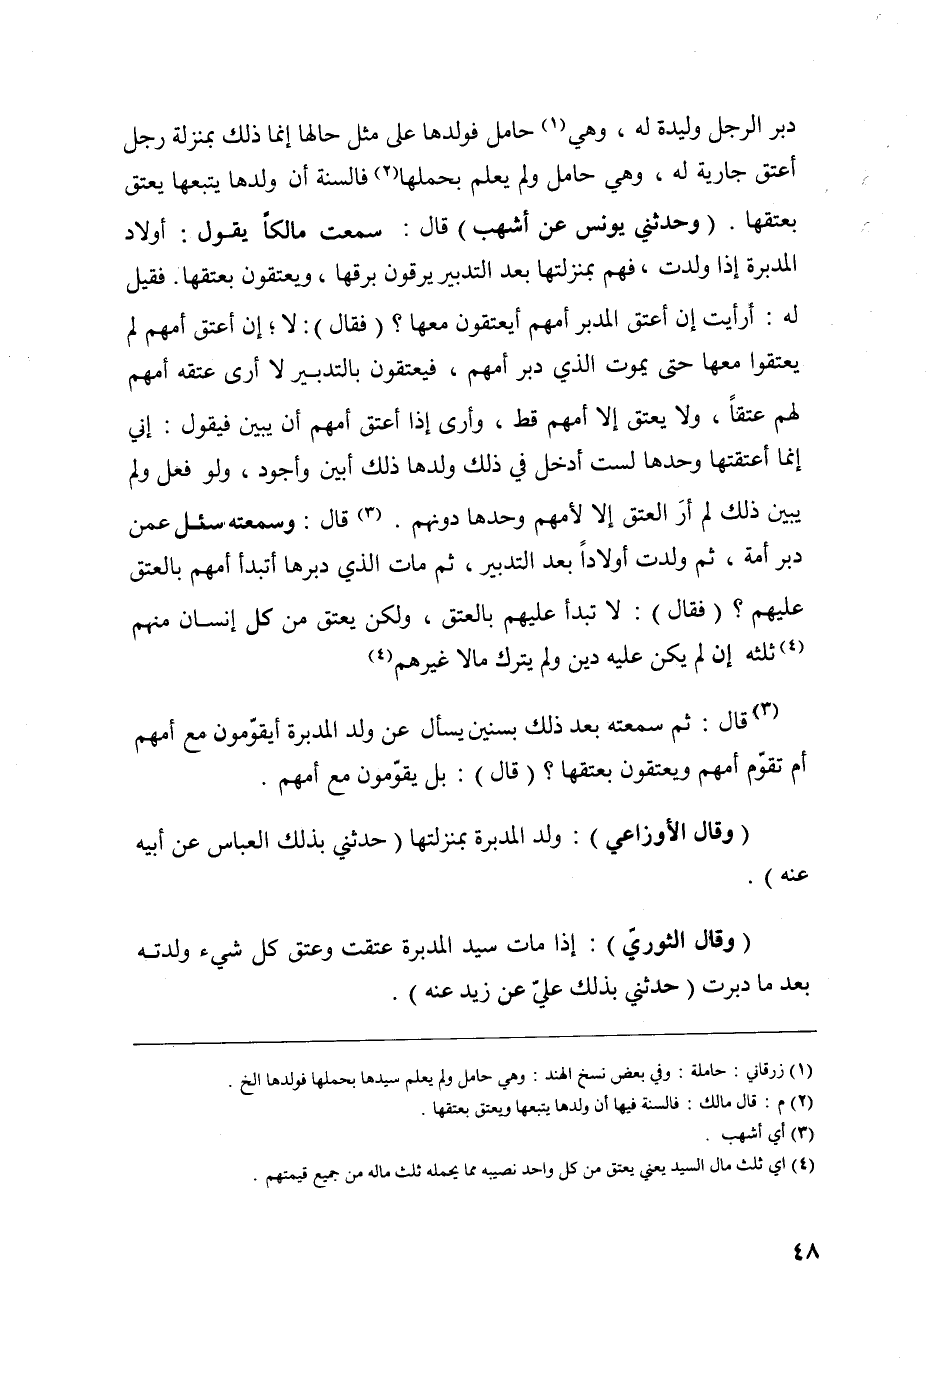 دبر الرجل وليدة له ، وهي(١) حامل فولدها على مثل حالها إنما ذلك بمنزلة رجل
أعتق جارية له ، وهي حامل ولم يعلم بحملها(٢) فالسنة أن ولدها يتبعها يعتق
بعتقها . ( وحدثني يونس عن أشهب ) قال : سمعت مالكاً يقول : أولاد
المدبرة إذا ولدت ، فهم بمنزلتها بعد التدبير يرقون برقها ، ويعتقون بعتقها . فقيل
له : أرأيت إن أعتق المدبر أمهم أيعتقون معها ؟ ( فقال ) : لا ؛ إن أعتق أمهم لم
يعتقوا معها حتى يموت الذي دبر أمهم ، فيعتقون بالتدبير لا أرى عتقه أمهم
لهم عتقاً ، ولا يعتق إلا أمهم قط ، وأرى إذا أعتق أمهم أن يبين فيقول : إني
إنما أعتقتها وحدها لست أدخل في ذلك ولدها ذلك أبين وأجود ، ولو فعل ولم
يبين ذلك لم أرَ العتق إلا لأمهم وحدها دونهم . (٣) قال : وسمعته سئل عمن
دبر أمة ، ثم ولدت أولاداً بعد التدبير ، ثم مات الذي دبرها أتبدأ أمهم بالعتق
عليهم ؟ ( فقال ) : لا تبدأ عليهم بالعتق ، ولكن يعتق من كل إنسان منهم
(٤) ثلثه إن لم يكن عليه دين ولم يترك مالا غيرهم(٤)
(٣) قال : ثم سمعته بعد ذلك بسنين يسأل عن ولد المدبرة أيقوّمون مع أمهم
أم تقوّم أمهم ويعتقون بعتقها ؟ ( قال ) : بل يقوّمون مع أمهم .
( وقال الأوزاعي ) : ولد المدبرة بمنزلتها ( حدثني بذلك العباس عن أبيه
عنه ) .
( وقال الثوريّ ) : إذا مات سيد المدبرة عتقت وعتق كل شيء ولدته
بعد ما دبرت ( حدثني بذلك عليّ عن زيد عنه ) .
(١) زرقاني : حاملة : وفي بعض نسخ الهند : وهي حامل ولم يعلم سيدها بحملها فولدها الخ .
(٢) م : قال مالك : فالسنة فيها أن ولدها يتبعها ويعتق بعتقها .
(٣) أي أشهب .
(٤) اي ثلث مال السيد يعني يعتق من كل واحد نصيبه مما يحمله ثلث ماله من جميع قيمتهم .
٤٨